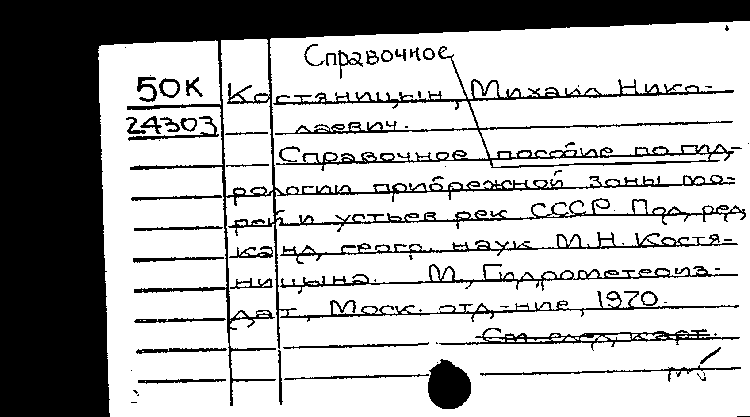 Справочное
50К Костяницын, Михаил Нико-
24303 лаевич.
Справочное пособие по гид-
рологии прибрежной зоны мо-
рей и устьев рек СССР. Под ред.
канд. геогр. наук М.Н. Костя-
ницына. М., Гидрометеоиз-
дат, Моск. отд-ние, 1970.
См. след. карт.